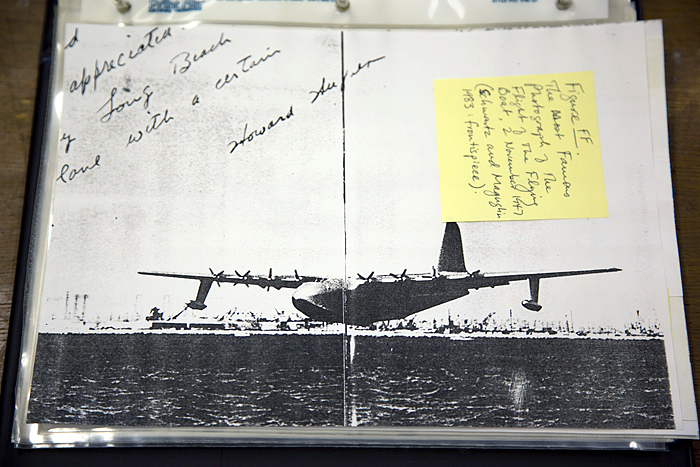 d
appreciated.
y Long Beach
lane with a certain
Howard Hughes
Figure FF.
The Most Famous
Photograph of The
Flight of The Flying
Boat, 2 November 1947
(Schwartz and Maguglin
1983: frontispiece).